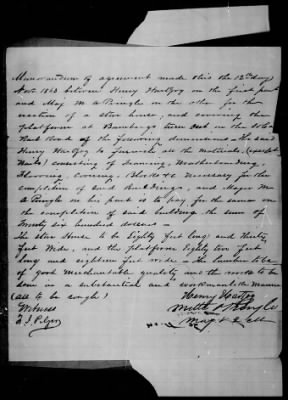 Memorandum of agreement made this the 13th day
Nov 1863 between Henry Hartzog on the first part
and Maj M A Pringle on the other for the
erection of a store house, and covering the
platform at Bamberg turn out on the So Ca
Rail Road of the following dimensions - The said
Henry Hartzog to furnish all the materials, (except
Nails) consisting of framing, Weatherboarding,
Flooring, Covering, Blocks &c necessary for the
completion of said Buildings, and Major M
A Pringle on his part is to pay for the same on
the completion of said building the sum of
Twenty six hundred dollars -
The store house to be Eighty feet long and thirty
feet wide, and the platform Eighty two feet
long and eighteen feet wide - the lumber to be
of good merchantable quality and the work to be
done in a substantial and workmanlike manner
(all to be rough)
Witness
Henry Hartzog
Pringle
Maj &